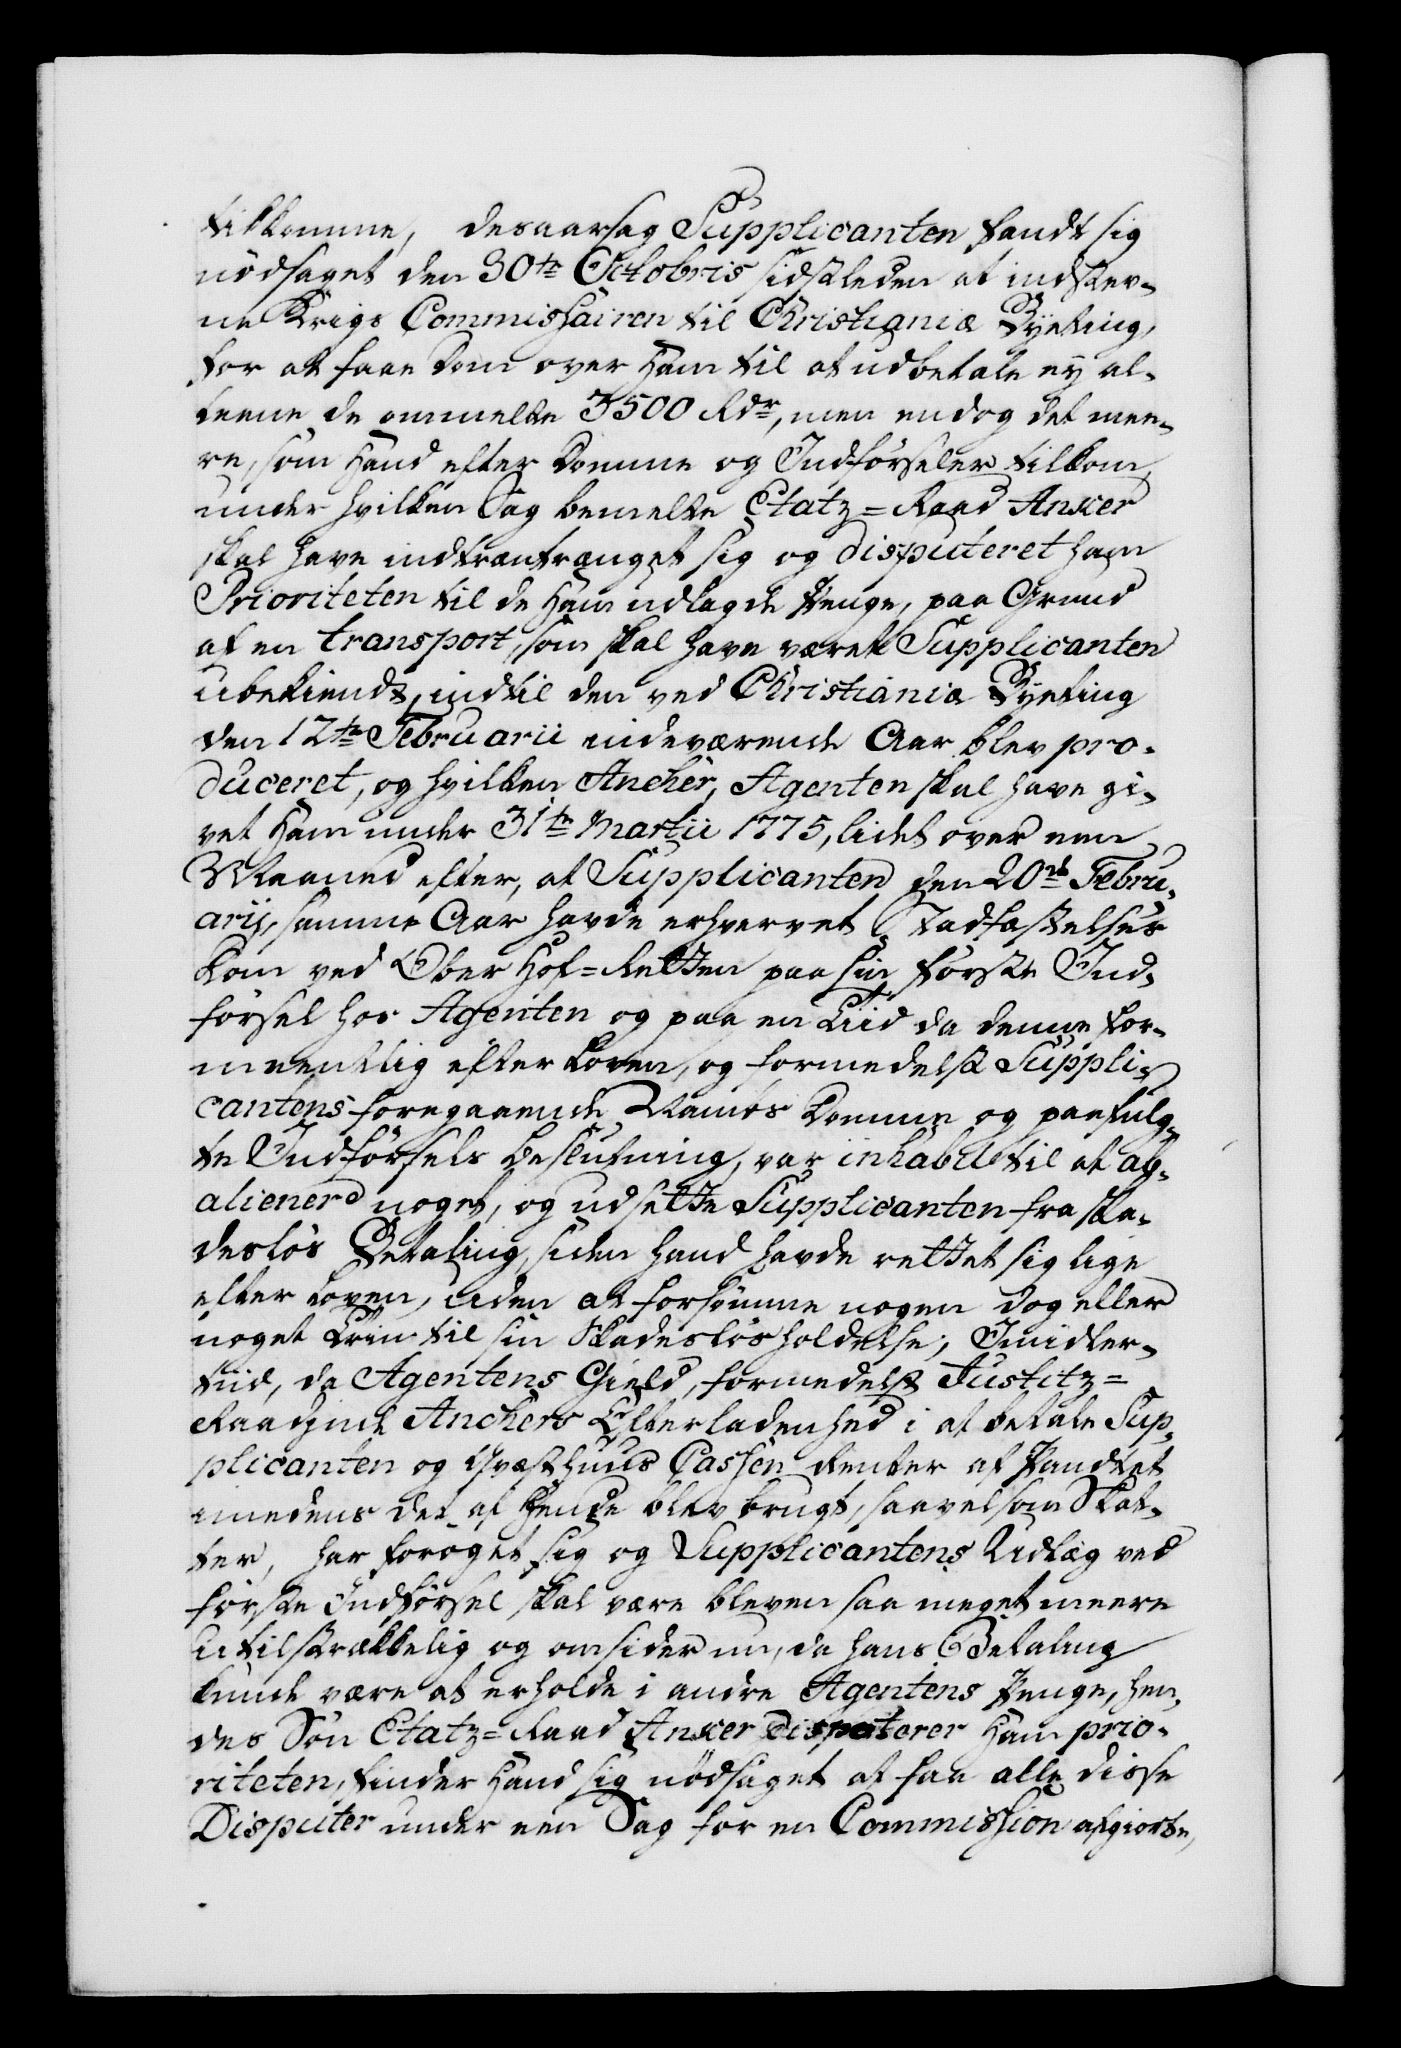 tilkomme, desaarsag Supplicanten fandt sig
nödsaget den 30te Octobris sidstleden at indstev-
ne Krigs Commishairen til Christiania Byeting,
for at faae Dom over Ham til at udbetale ey al-
leene de ommelte 3500 Rdr, men endog det mee-
re, som Hand efter Domme og Indførseler tilkom,
under hvilken Sag bemelte Etatz-Raad Anker
skal have indtrængtrænget sig og disputeret ham
Prioriteten til de Ham udlagde Penge, paa Grund
af en transport, som skal have været Supplicanten
ubekiendt, indtil den ved Christiania Byeting
den 12te Februarii indeværende Aar blev pro-
duceret, og hvilken Ancher, Agenten skal have gi-
vet Ham under 31te Martii 1775, lidet over een
Maaned efter, at Supplicanten den 20de Febru-
arij, samme Aar havde erhvervet Stadfæstelses
Dom ved Ober Hof-Retten paa sin første Ind-
førsel hos Agenten og paa en Tiid da denne for-
meentlig efter Loven, og formedelst Suppli-
cantens foregaaende Namos Domme og paafulg-
te Indførsels Beslutning, var inhabil til at ab-
alienere noget, og udsette Supplicanten fra ska-
desløs Betaling, siden Hand havde rettet sig lige
efter Loven, uden at forsømme nogen Dog eller
noget Trin til sin Skadesløsholdelse; Imidler-
tiid, da Agentens Gield, formedelst Justitz-
Raadinde Anchers Efterladenhed i at betale Sup-
plicanten og Qvæsthuus Cassen Renter af Pandtet
imedens det af Hende blev brugt, saavelsom Skat-
ter, har forøget sig og Supplicantens Udlæg ved
første Indførsel skal være bleven saa meget meere
utilstrækkelig og omsider nu, da hans Betaling
kunde være at erholde i andre Agentens Penge, hen-
des Søn Etatz-Raad Anker Disputerer Ham prio-
riteten, finder Hand sig nødsaget at faae alle disse
Disputer under een Sag for en Commishion afgiorte,